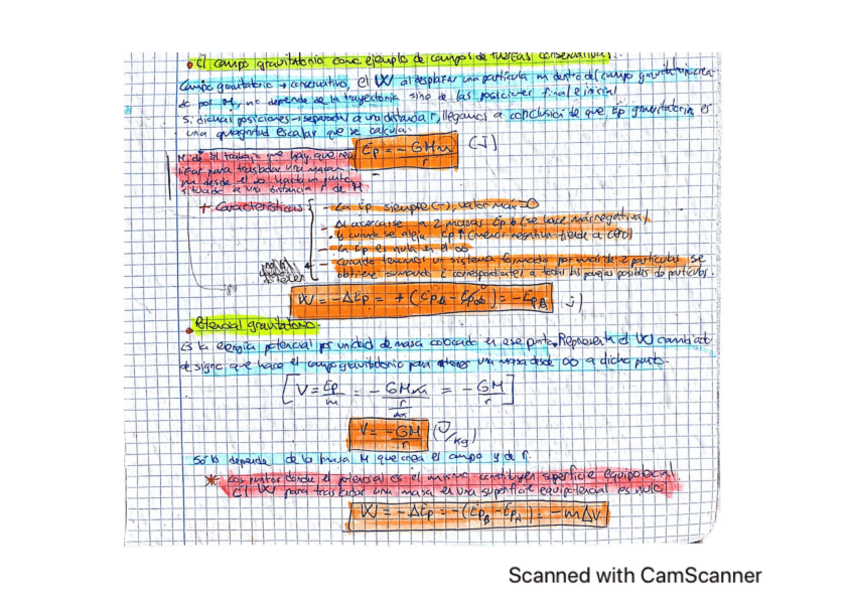 • El campo gravitatorio como ejemplo de campos de fuerzas conservativas.
Campo gravitatorio → conservativo, el W al desplazar una partícula m dentro del campo gravitatorio crea-
do por M, no depende de la trayectoria sino de las posiciones final e inicial
Si dichas posiciones → separadas a una distancia r, llegamos a conclusión de que Ep gravitatoria es
una magnitud escalar que se calcula:
Ep = - GMm / r (J)
el trabajo que hay que rea
lizar para trasladar una masa
m desde el ∞ hasta un punto
situado a una distancia r de M
+ Características
- La Ep siempre (-), valor máx = 0
- Al acercarse 2 masas Ep ↓ (se hace más negativa)
y cuando se aleja Ep ↑ (menos negativa tiende a cero)
- La Ep es nula en el ∞
- cuando tenemos un sistema formado por más de 2 partículas se
obtiene sumando correspondientes a todas las parejas posibles de partículas.
W = -ΔEp = + (EpA - Ep∞) = -EpA (J)
• Potencial gravitatorio.
Es la energía potencial por unidad de masa colocada en ese punto. Representa el W cambiado
de signo que hace el campo gravitatorio para traer una masa desde ∞ a dicho punto.
[V = Ep / m = - GMm / r / m = - GM / r]
V = - GM / r (J/kg)
Sólo depende de la masa M que crea el campo y de r.
* Los puntos donde el potencial es el mismo constituyen superficie equipotencial
El W para trasladar una masa en una superficie equipotencial es nulo
W = -ΔEp = -(EpB - EpA) = -mΔV
Scanned with CamScanner